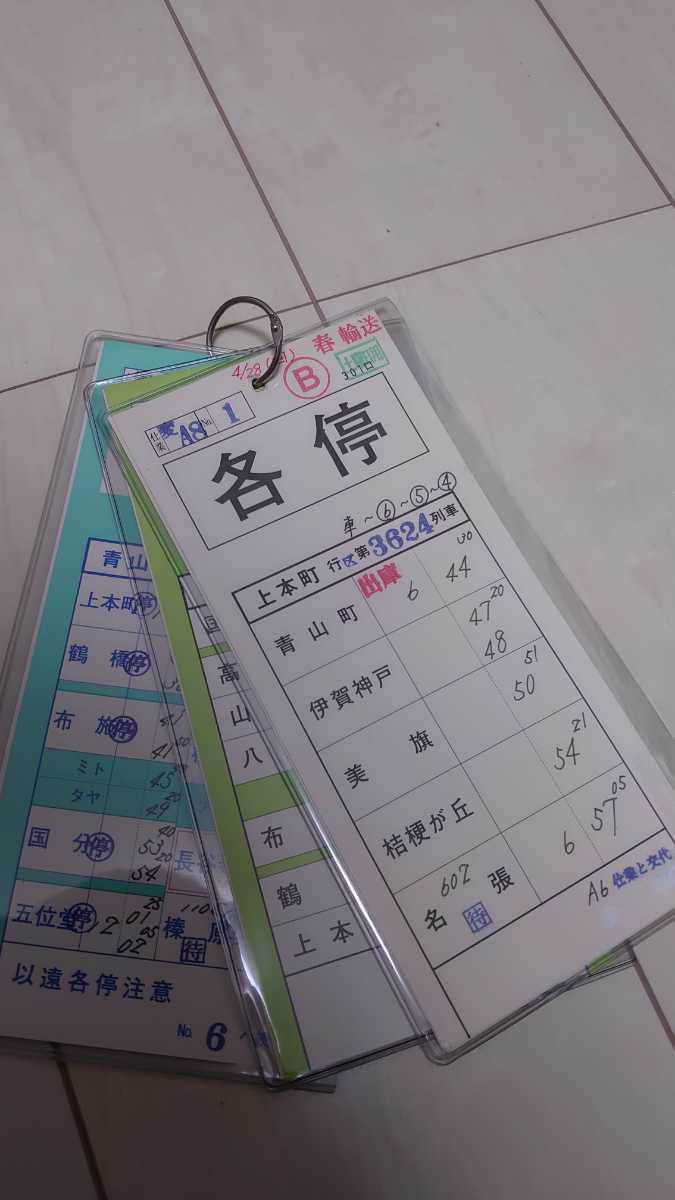 4/28 春輸送
B 301ロ
仕業 変A8 No. 1
各停
車~⑥~⑤~④
上本町 行 区 第3624列車
青山町 出庫 6 44 30
伊賀神戸 47 20 48
美旗 50 51
桔梗が丘 54 21
602
名張 待 6 57 05
A6仕業と交代
青山
上本町 停
鶴橋 停
布施 停
ミト 45
タヤ
国分 停 53 40
54 20
五位堂 停 12 01 25
02 05
長谷
榛原
待
以遠各停注意
No. 6
高
山
八
布
鶴
上本